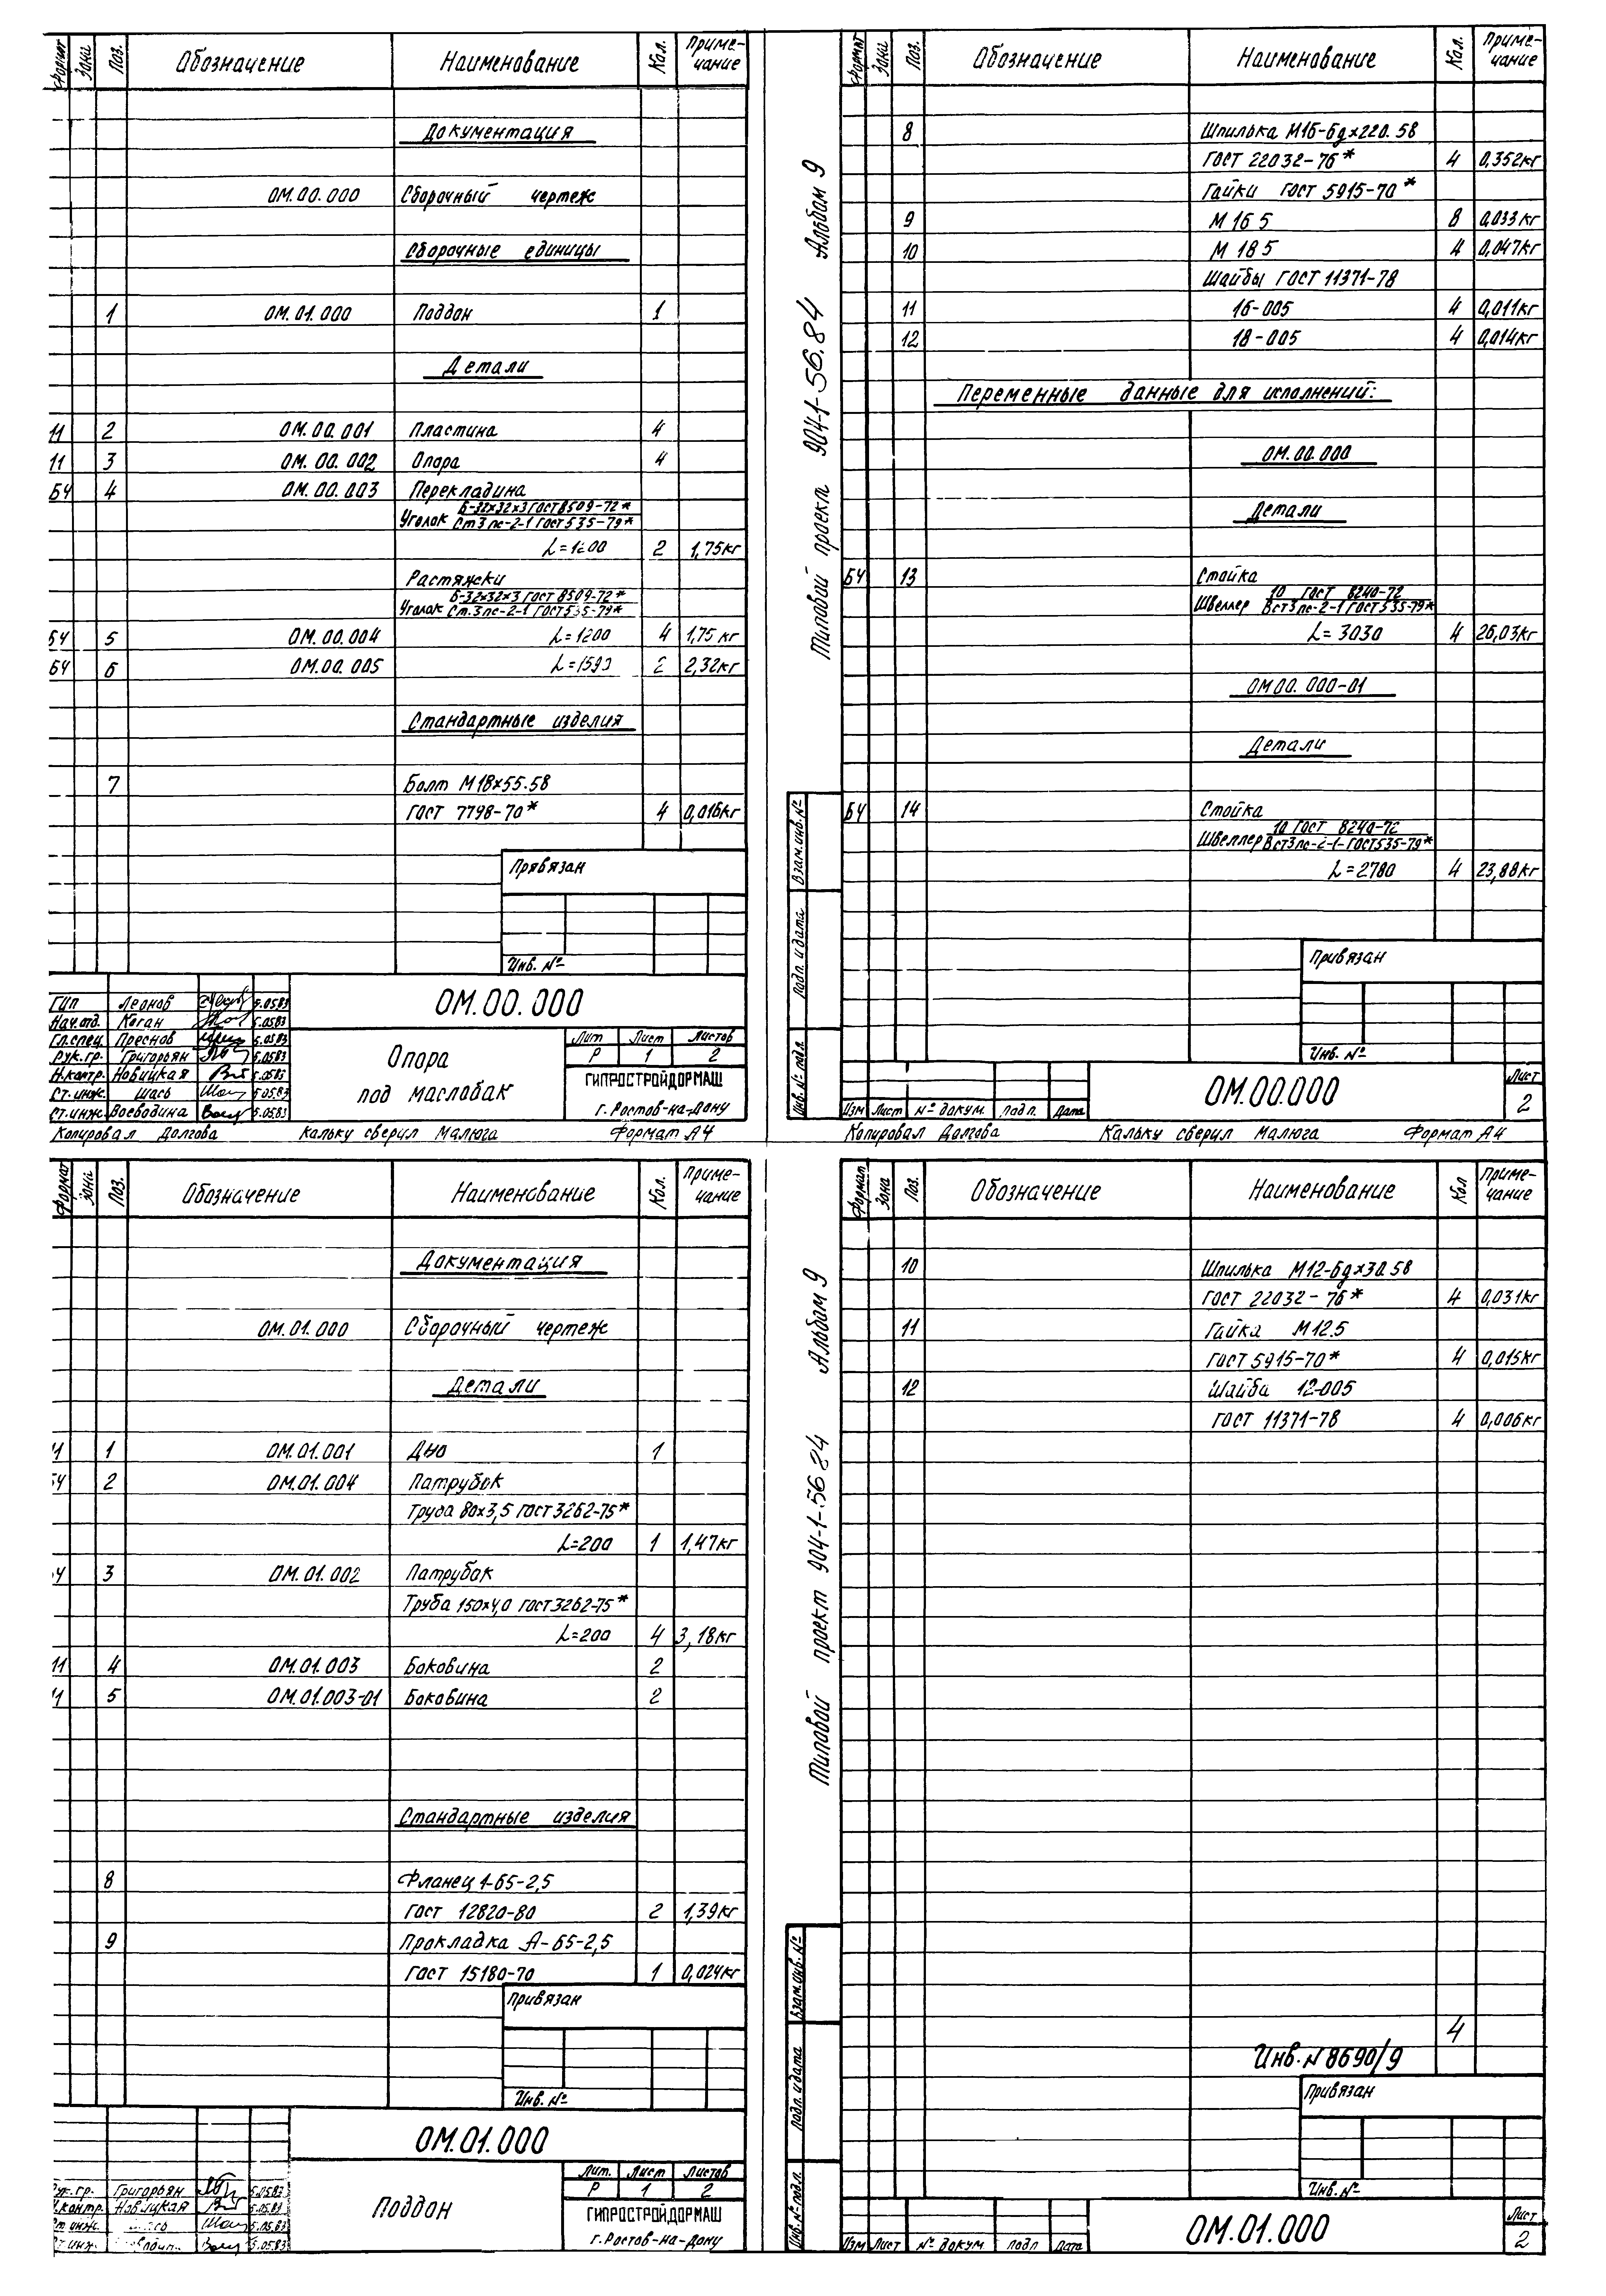 Формат Зона Поз. Обозначение Наименование Кол. Приме-
чание
Документация
ОМ.00.000 Сборочный чертеж
Сборочные единицы
1 ОМ.01.000 Поддон 1
Детали
11 2 ОМ.00.001 Пластина 4
11 3 ОМ.00.002 Опора 4
БЧ 4 ОМ.00.003 Перекладина
Б-32х32х3 ГОСТ 8509-72*
Уголок Ст3пс-2-1 ГОСТ 535-79*
L=1200 2 1,75кг
Растяжки
Б-32х32х3 ГОСТ 8509-72*
Уголок Ст.3пс-2-1 ГОСТ 535-79*
БЧ 5 ОМ.00.004 L=1200 4 1,75 кг
БЧ 6 ОМ.00.005 L=1590 2 2,32кг
Стандартные изделия
7 Болт М18х55.58
ГОСТ 7798-70* 4 0,016кг
Прявязан
Инв. №
ГИП Леонов 5.0583
Нач.отд. Коган 5.0583
Гл.спец. Преснов 5.0583
Рук.гр. Григорьян 5.0583
Н.контр. Новицкая 5.0583
Ст.инж. Шась 5.0583
Ст.инж. Воеводина 5.0583
ОМ.00.000
Опора
под маслобак
Лит Лист Листов
Р 1 2
ГИПРОСТРОЙДОРМАШ
г. Ростов-на-Дону
Копировал Долгова Кальку сверил Малюга Формат А4
Типовой проект 904-1-56.84 Альбом 9
Формат Зона Поз. Обозначение Наименование Кол. Приме-
чание
8 Шпилька М16-6gх220.58
ГОСТ 22032-76* 4 0,352кг
Гайки ГОСТ 5915-70*
9 М 16 5 8 0,033кг
10 М 18 5 4 0,047кг
Шайбы ГОСТ 11371-78
11 16-005 4 0,011кг
12 18-005 4 0,014кг
Переменные данные для исполнений:
ОМ.00.000
Детали
БЧ 13 Стойка
10 ГОСТ 8240-72
Швеллер Вст3пс-2-1 ГОСТ 535-79*
L= 3030 4 26,03кг
ОМ00.000-01
Детали
БЧ 14 Стойка
10 ГОСТ 8240-72
Швеллер Вст3пс-2-1-ГОСТ 535-79*
L=2780 4 23,88кг
Привязан
Инв. №
Взам.инв.№
Подп. и дата
Инв.№ подл.
Изм Лист № докум. Подп. Дата
ОМ.00.000
Лист
2
Копировал Долгова Кальку сверил Малюга Формат А4
Формат Зона Поз. Обозначение Наименование Кол. Приме-
чание
Документация
ОМ.01.000 Сборочный чертеж
Детали
11 1 ОМ.01.001 Дно 1
БЧ 2 ОМ.01.004 Патрубок
Труба 80х3,5 ГОСТ 3262-75*
L=200 1 1,47кг
БЧ 3 ОМ.01.002 Патрубок
Труба 150х4,0 ГОСТ 3262-75*
L=200 4 3,18кг
11 4 ОМ.01.003 Боковина 2
11 5 ОМ.01.003-01 Боковина 2
Стандартные изделия
8 Фланец 1-65-2,5
ГОСТ 12820-80 2 1,39кг
9 Прокладка А-65-2,5
ГОСТ 15180-70 1 0,024кг
Привязан
Инв. №
Рук.гр. Григорьян 5.0583
Н.контр. Новицкая 5.0583
Ст инж. 5.05.83
Ст.инж. 5.0583
ОМ.01.000
Поддон
Лит. Лист Листов
Р 1 2
ГИПРОСТРОЙДОРМАШ
г. Ростов-на-Дону
Типовой проект 904-1-56 84 Альбом 9
Формат Зона Поз. Обозначение Наименование Кол Приме-
чание
10 Шпилька М12-6gх30.58
ГОСТ 22032-76* 4 0,031кг
11 Гайка М12.5
ГОСТ 5915-70* 4 0,015кг
12 Шайба 12-005
ГОСТ 11371-78 4 0,006кг
4
Инв.№8690/9
Привязан
Инв.№
Взам.инв.№
Подп. и дата
Инв.№ подл.
Изм Лист № докум. Подп Дата
ОМ.01.000
Лист
2